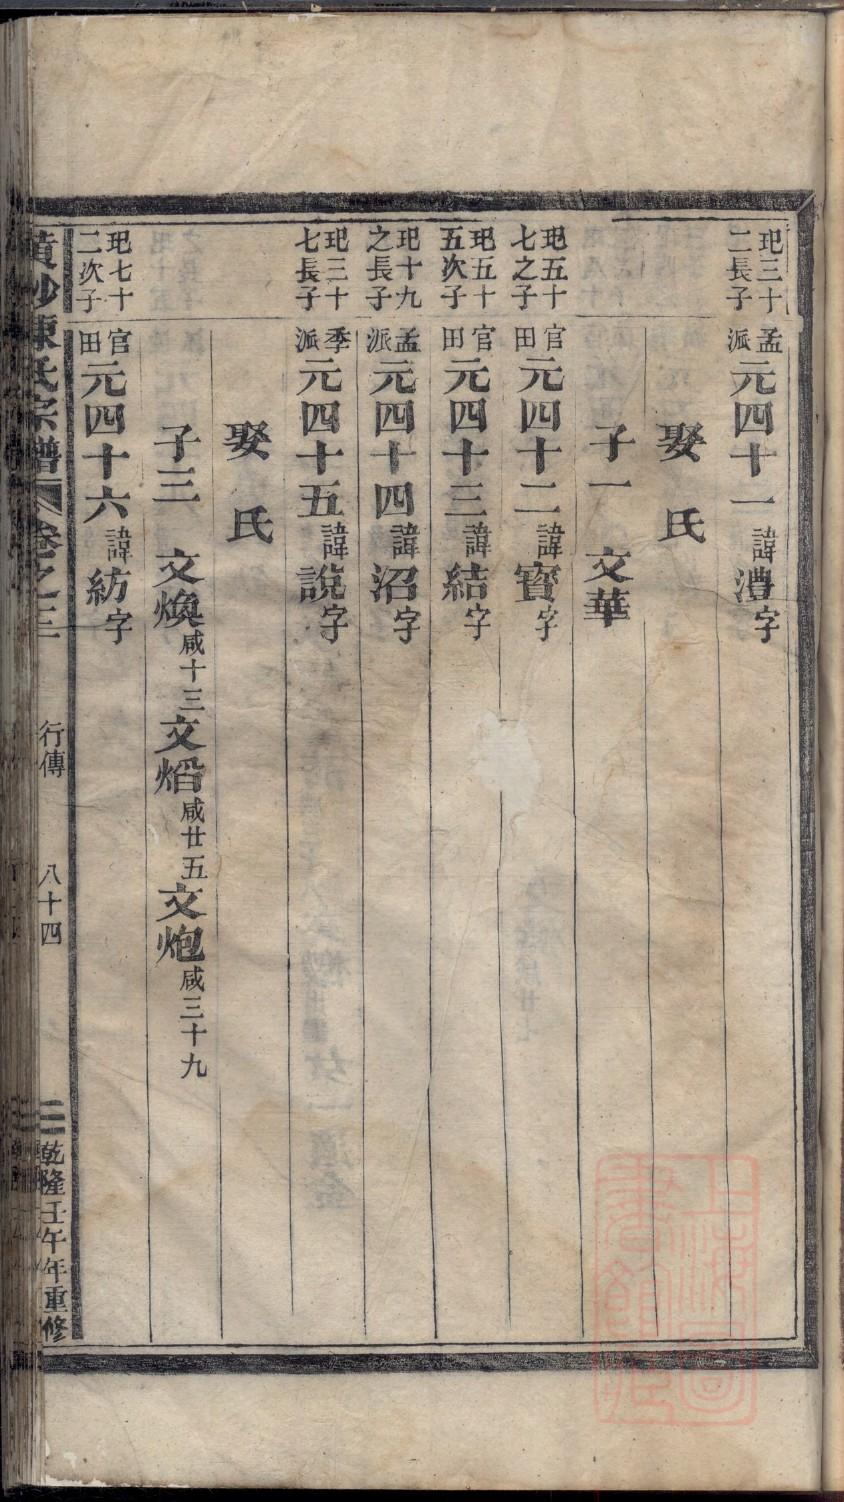 玘三十二長子
孟派元四十一諱澧字
娶 氏
子一 文華
玘五十七之子
官田元四十二諱賓字
玘五十五次子
官田元四十三諱結字
玘十九之長子
孟派元四十四諱沼字
玘三十七長子
季派元四十五諱說字
娶 氏
子三 文煥咸十三 文熖咸廿五 文炮咸三十九
玘七十二次子
官田元四十六諱紡字
陳氏宗譜 卷之三 行傳 八十四 乾隆壬午年重修
上海圖書館藏